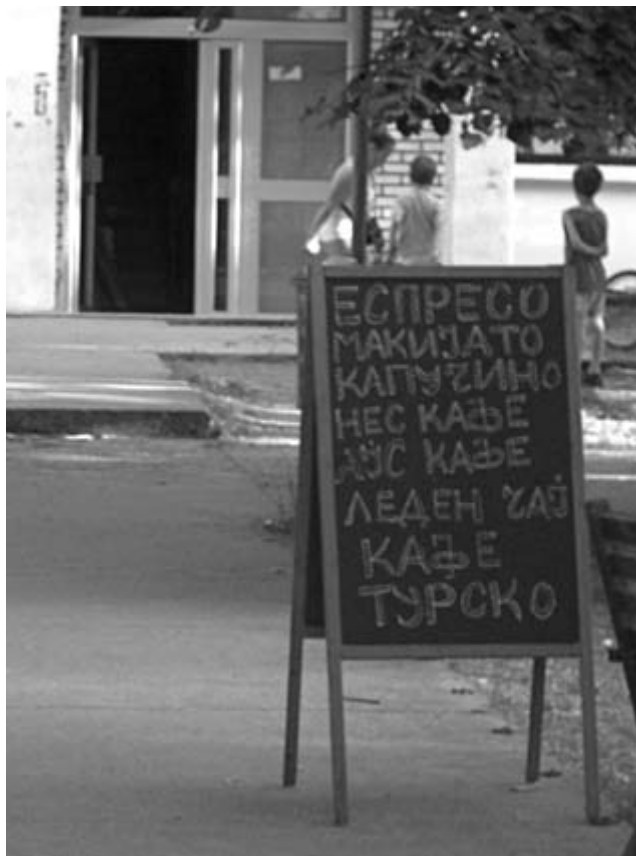 ЕСПРЕСО
МАКИЈАТО
КАПУЧИНО
НЕС КАФЕ
АЈС КАФЕ
ЛЕДЕН ЧАЈ
КАФЕ
ТУРСКО